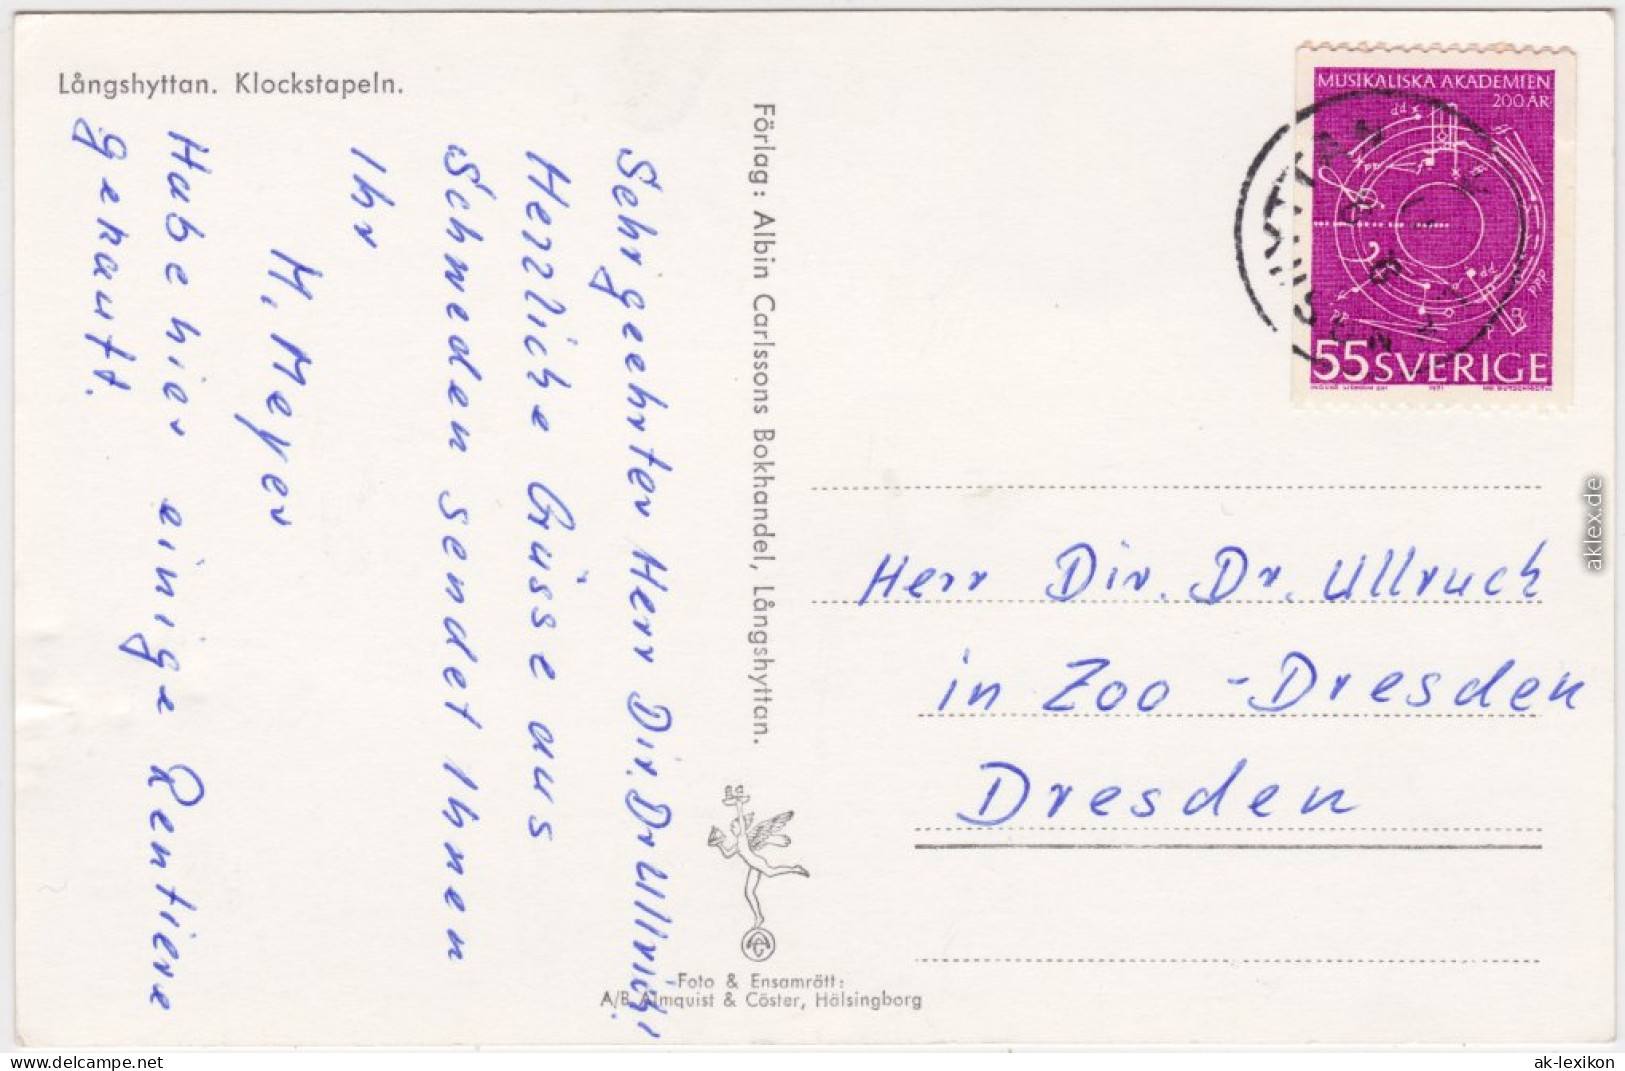 Långshyttan. Klockstapeln.
Sehr geehrter Herr Dir. Dr Ullrich!
Herzliche Grüsse aus
Schweden sendet Ihnen
Ihr
H. Meyer
Habe hier einige Rentiere
gekauft.
Förlag: Albin Carlssons Bokhandel, Långshyttan.
Foto & Ensamrätt:
A/B Almquist & Cöster, Hälsingborg
MUSIKALISKA AKADEMIEN
200 ÅR
55 SVERIGE
1971
Herr Dir. Dr. Ullruch
in Zoo - Dresden
Dresden
aklex.de
www.delcampe.net
ak-lexikon